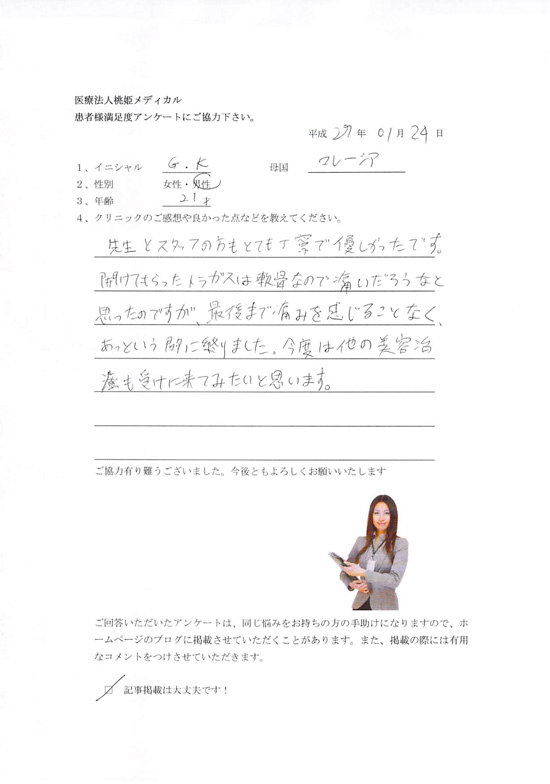 医療法人桃姫メディカル
患者様満足度アンケートにご協力下さい。
平成 27 年 01 月 24 日
1、イニシャル G.K 母国 マレーシア
2、性別 女性・男性
3、年齢 21才
4、クリニックのご感想や良かった点などを教えてください。
先生とスタッフの方もとても丁寧で優しかったです。
開けてもらったトラガスは軟骨なので痛いだろうなと
思ったのですが、最後まで痛みを感じることなく、
あっという間に終りました。今度は他の美容治
療も受けに来てみたいと思います。
ご協力有り難うございました。今後ともよろしくお願いいたします
ご回答いただいたアンケートは、同じ悩みをお持ちの方の手助けになりますので、ホ
ームページのブログに掲載させていただくことがあります。また、掲載の際には有用
なコメントをつけさせていただきます。
□ 記事掲載は大丈夫です！